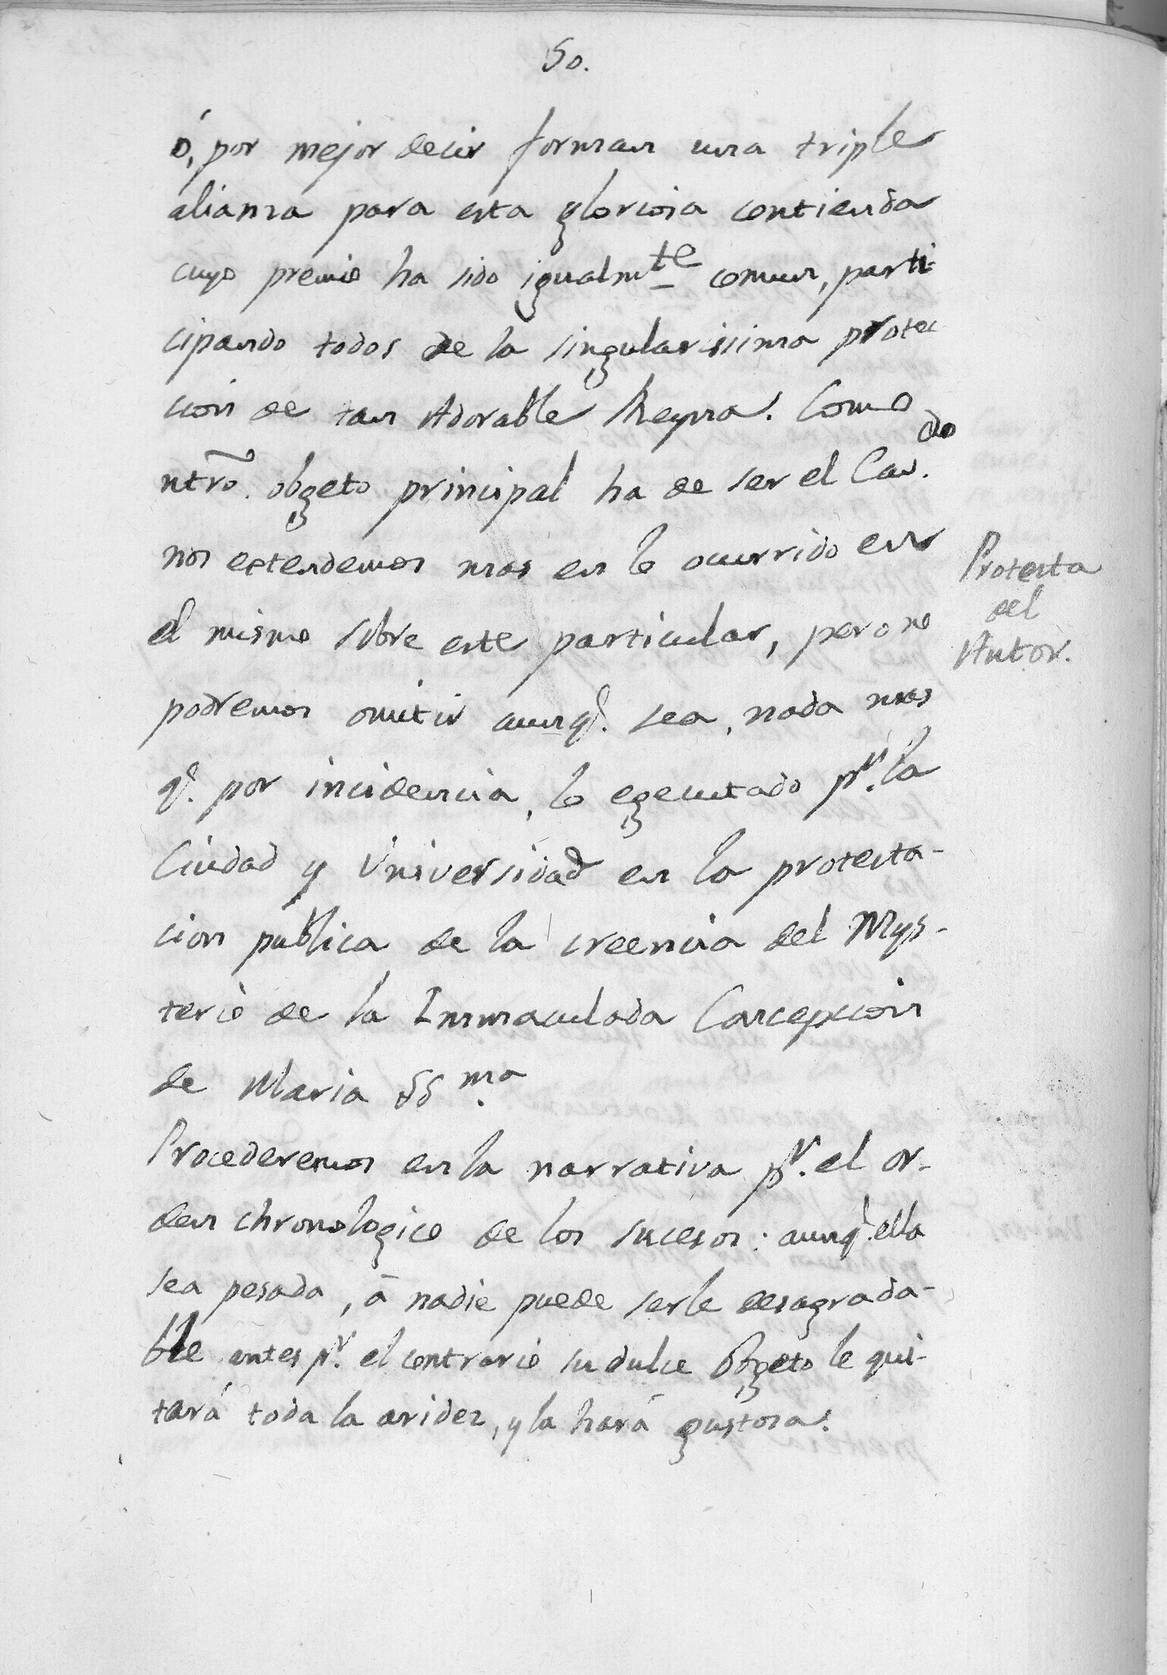 50.
ó, por mejor decir forman una triple
alianza para esta gloriosa contienda
cuyo premio ha sido igualmte comun, parti-
cipando todos de la singularissima protec
cion de tan Adorable Reyna. Como
ntro. objeto principal ha de ser el Cavdo.
nos estendemos mas en lo ocurrido en
el mismo sobre este particular, pero no
podremos omitir aunq. sea, nada mas
q. por incidencia, lo egecutado pr. la
Ciudad y Universidad en la protesta-
cion publica de la creencia del Mys-
terio de la Inmaculada Concepcion
de Maria SSma.
Procederemos en la narrativa pr. el or-
den chronologico de los sucesos: aunq. ella
sea pesada, á nadie puede serle desagrada-
ble antes pr. el contrario su dulce Objeto le qui-
tará toda la aridez, y la hará gustosa.
Protesta
del
Autor.